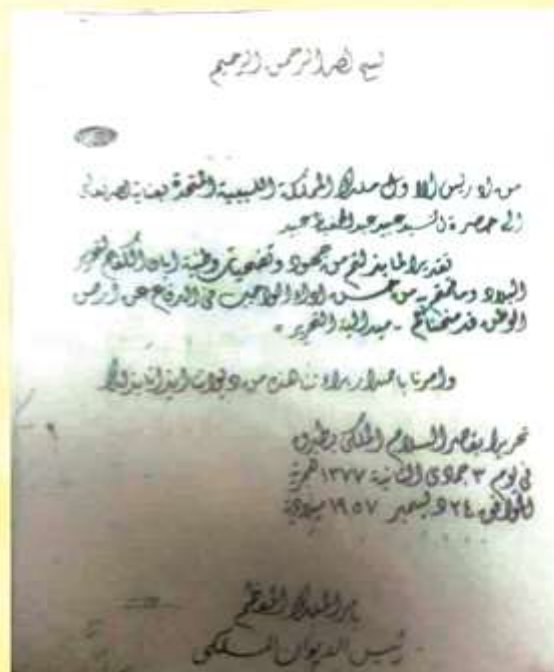 بسم الله الرحمن الرحيم
من إدريس الأول ملك المملكة الليبية المتحدة بعناية الله تعالى
إلى حضرة السيد عبيد عبد الحفيظ عبيد
تقديرا لما بذلتم من جهود وتضحيات وطنية ابان الكفاح لتحرير
البلاد وما قمتم به من حسن اداء الواجب في الدفاع عن ارض
الوطن قد منحناكم - ميدالية التحرير -
وامرنا باصدار براءتنا هذه من ديواننا ايذانا بذلك
تحريرا بقصر السلام الملكي بطبرق
في يوم ٣ جمادى الثانية ١٣٧٧ هجرية
الموافق ٢٤ ديسمبر ١٩٥٧ ميلادية
بأمر الملك المعظم
رئيس الديوان الملكي